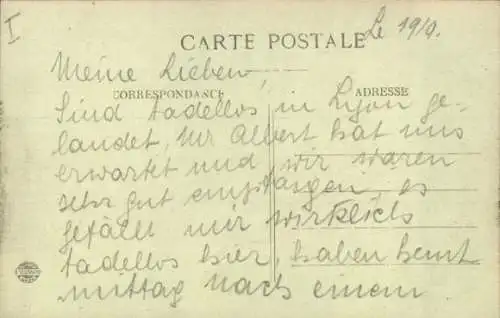 I
Le 19/9.
CARTE POSTALE
Meine Lieben,
CORRESPONDANCE
ADRESSE
Sind tadellos in Lyon ge-
landet, Mr Albert hat uns
erwartet und wir waren
sehr gut empfangen, es
gefällt mir wirklich
tadellos hier, haben heut
mittag nach einem